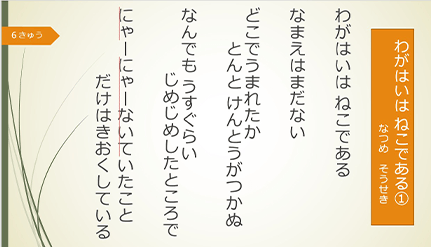 6きゅう
わがはいは ねこである①
なつめ そうせき
わがはいは ねこである
なまえはまだない
どこでうまれたか
とんと けんとうがつかぬ
なんでも うすぐらい
じめじめしたところで
にゃーにゃーないていたこと
だけはきおくしている